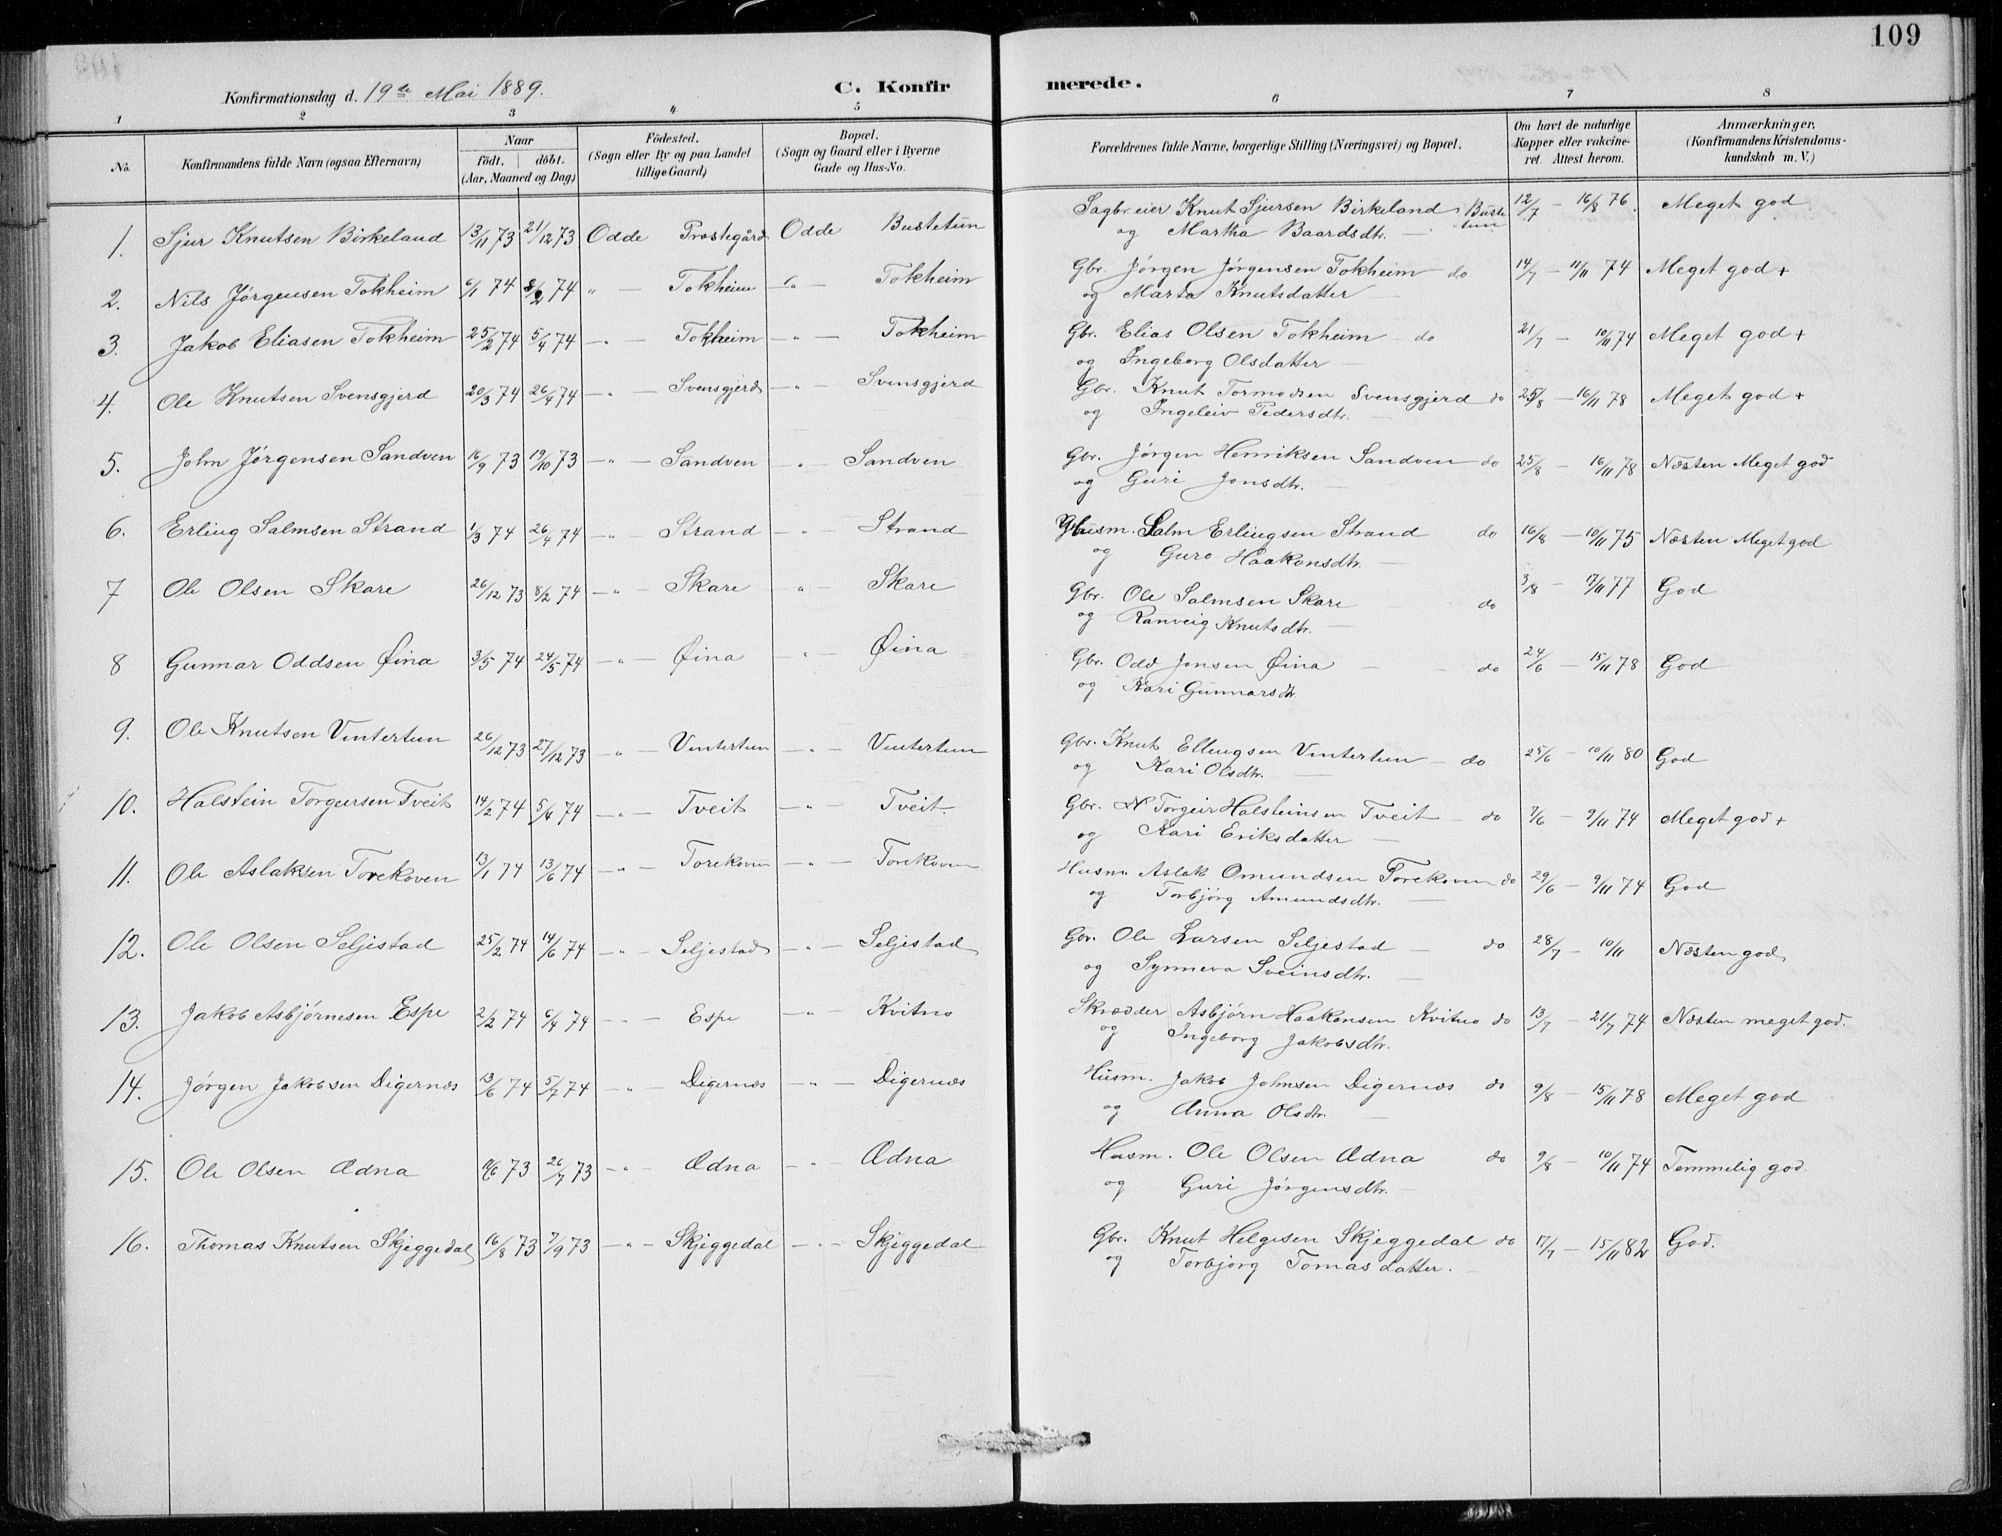 109
Konfirmationsdag d. 19de Mai 1889.
C. Konfirmerede.
1 2 3 4 5 6 7 8
No. Konfirmandens fulde Navn (ogsaa Efternavn) Naar födt. döbt. (Aar, Maaned og Dag) Födested. (Sogn eller By og paa Landet tillige Gaard) Bopæl. (Sogn og Gaard eller i Byerne Gade og Hus-No. Forældrenes fulde Navne, borgerlige Stilling (Næringsvei) og Bopæl. Om havt de naturlige Kopper eller vakcineret. Attest herom. Anmærkninger, (Konfirmandens Kristendomskundskab m. V.)
1. Sjur Knutsen Birkeland 13/11 73 21/12 73 Odde Præstegård Odde Bustetun Sagbr.eier Knut Sjursen Birkeland Bustetun 12/7 – 16/8 76. Meget god
og Martha Baardsdtr. —
2. Nils Jørgensen Tokheim 6/1 74 8/2 74 " — Tokheim " — Tokheim Gbr. Jørgen Jørgensen Tokheim — do 14/7 – 11/11 74 Meget god +
og Marta Knutsdatter —
3. Jakob Eliasen Tokheim 25/2 74 5/4 74 — " — Tokheim — " — Tokheim Gbr. Elias Olsen Tokheim — do 21/7 – 10/11 74 Meget god +
og Ingeborg Olsdatter —
4. Ole Knutsen Svensgjerd 20/3 74 26/4 74 — " — Svensgjerd — " — Svensgjerd Gbr. Knut Tormodsen Svensgjerd do 25/8 – 16/11 78 Meget god +
og Ingeleiv Pedersdtr. —
5. John Jørgensen Sandven 16/9 73 19/10 73 — " — Sandven " — Sandven Gbr. Jørgen Henriksen Sandven — do 25/8 – 16/11 78 Næsten Meget god
og Guri Jonsdtr. —
6. Erling Salmsen Strand 1/3 74 26/4 74 — " — Strand — " — Strand Husm. Salm Erlingsen Strand do 16/8 – 10/11 75 Næsten Meget god
og Guro Haakonsdtr. —
7 Ole Olsen Skare 26/12 73 8/2 74 — " — Skare " — Skare Gbr. Ole Salmsen Skare do 3/8 – 7/11 77 God
og Ranveig Knutsdtr. —
8 Gunnar Oddsen Øina 3/5 74 24/5 74 — " — Øina — " — Øina Gbr. Odd Jonsen Øina — do 24/6 – 15/11 78 God
og Kari Gunnarsdtr.
9. Ole Knutsen Vintertun 26/12 73 27/12 73 — " — Vintertun — " — Vintertun Gbr. Knut Ellingsen Vintertun — do 25/6 – 10/11 80 God
og Kari Olsdtr. —
10. Halstein Torgeirsen Tveit 14/2 74 5/4 74 — " — Tveit — " — Tveit. Gbr. Torgeir Halsteinsen Tveit — do 7/6 – 9/11 74 Meget god +
og Kari Eriksdatter —
11. Ole Aslaksen Torekoven 13/1 74 13/6 74 — " — Torekoven — " — Torekoven Husm. Aslak Omundsen Torekoven do 29/6 – 9/11 74 God
og Torbjørg Amundsdtr. —
12. Ole Olsen Seljestad 25/2 74 14/6 74 — " — Seljestad — " — Seljestad Gbr. Ole Larsen Seljestad — do 28/7 – 10/11 Næsten god
og Synneva Sveinsdtr. —
13. Jakob Asbjørnesen Espe 2/2 74 6/4 74 — " — Espe — " — Kvitno Skrædder Asbjørn Haakonsen Kvitno do 13/7 – 21/7 74 Næsten meget god.
og Ingeborg Jakobsdtr.
14. Jørgen Jakobsen Digernæs 13/6 74 5/7 74 — " — Digernæs — " — Digernæs Husm. Jakob Johnsen Digernæs do 9/8 – 15/11 78 Meget god
og Anna Olsdtr. —
15. Ole Olsen Ædna 73 26/7 73 — " — Ædna — " — Ædna Husm. Ole Olsen Ædna do 9/8 – 10/11 74 Temmelig god.
og Guri Jørgensdtr. —
16. Thomas Knutsen Skjeggedal 16/8 73 7/9 73 — " — Skjeggedal — " — Skjeggedal Gbr. Knut Helgesen Skjeggedal do 17/7 – 15/11 82 God.
og Torbjørg Tomasdatter. —